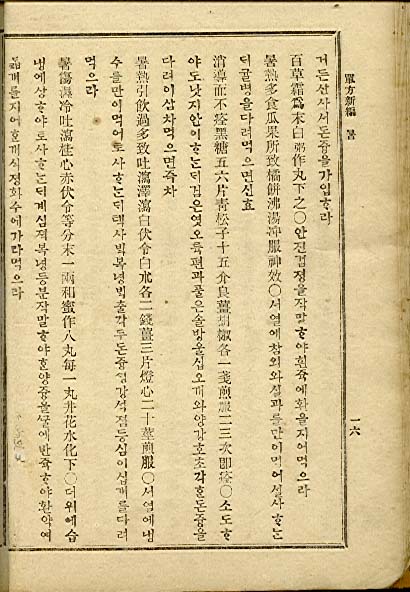 單方新編 暑
거든산사서돈즁을가입ᄒᆞ라
百草霜爲末白粥作丸下之○안진검졍을작말ᄒᆞ야흰쥭에환을지어먹으라
暑熱多食瓜果所致橘餠沸湯沖服神效○서열에참외와실과를만이먹어설사ᄒᆞᄂᆞᆫ
듸귤병을다려먹으면신효
消導而不痊黑糖五六片靑松子十五介良薑胡椒各一戔煎服二三次卽痊○소도ᄒᆞ
야도낫지안이ᄒᆞᄂᆞᆫ듸검은엿오륙편과풀은솔방울십오개와양강호초각ᄒᆞᆫ돈즁을
다려이삼차먹으면즉차
暑熱引飮過多致吐瀉澤瀉白伏令白朮各二錢薑三片燈心二十莖煎服○서열에냉
수를만이먹어토사ᄒᆞᄂᆞᆫ듸택사ᄇᆡᆨ복녕ᄇᆡᆨ출각두돈즁ᄉᆡᆼ강석점등심이십개를다려
먹으라
暑傷濕冷吐瀉桂心赤伏令等分末一兩和蜜作八丸每一丸井花水化下○더위에습
냉에상ᄒᆞ야토사ᄒᆞᄂᆞᆫ듸계심젹복녕등분작말ᄒᆞ야ᄒᆞᆫ양즁을ᄭᅮᆯ에반쥭ᄒᆞ야환약여
닯개를지어ᄒᆞᆫ개식졍화수에가라먹으라
一六